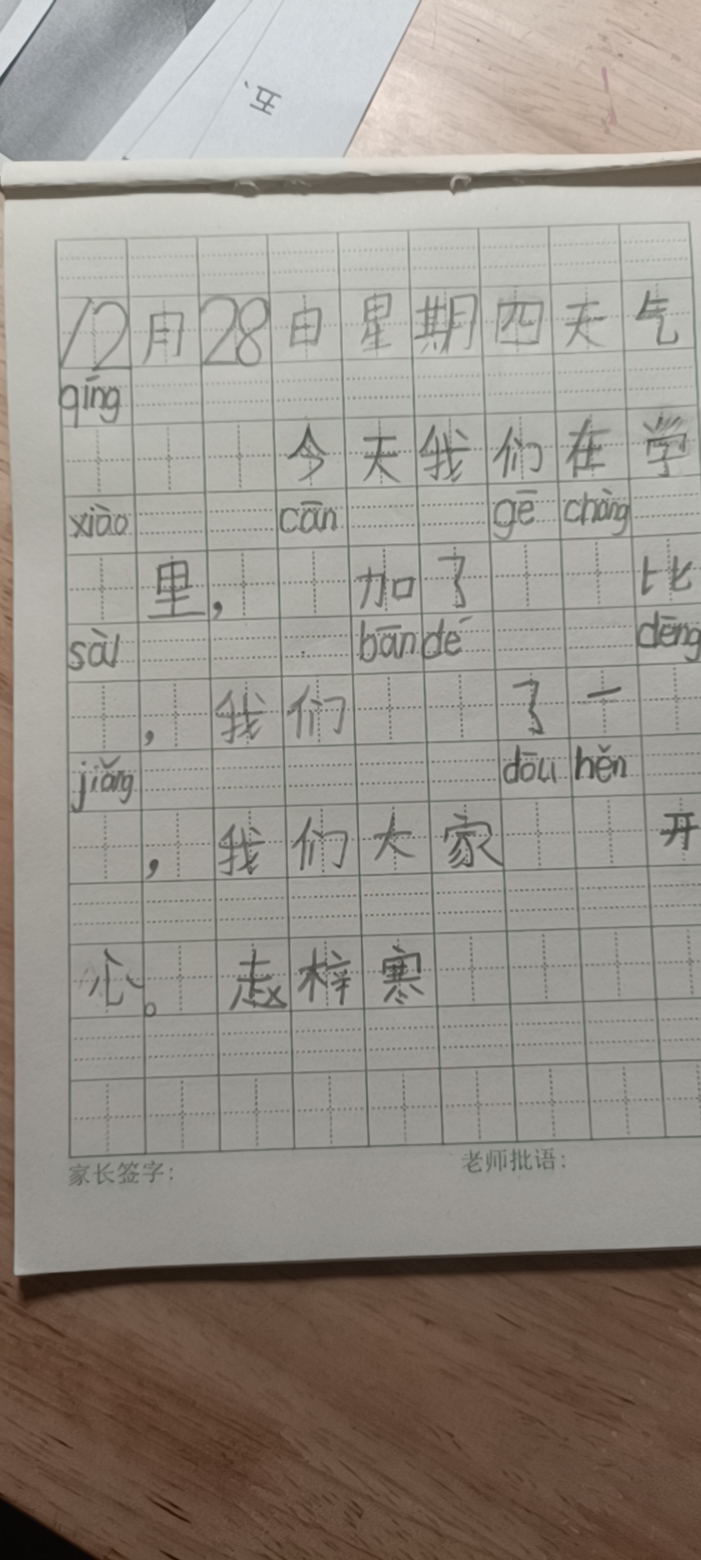 五、
12月28日星期四天气
qíng
今天我们在学
xiào cān gē chàng
里，加了比
sài bān dé dēng
，我们了一
jiǎng dōu hěn
，我们大家开
心。赵梓寒
家长签字：老师批语：